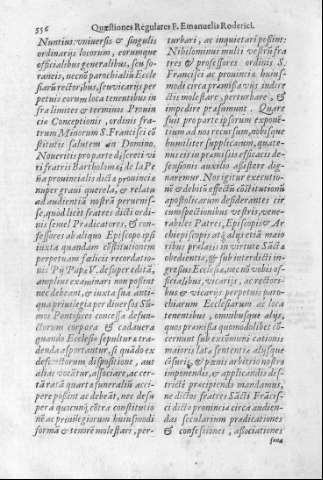 556 Quæstiones Regulares F. Emanuelis Roderici.
Nuntius vniuersis & singulis
ordinarijs locorum, eorumque
officialibus generalibus, seu fo-
raneis, necnõ parochialiũ Eccle
siarũ rectoribus, seu vicarijs per
petuis eorum loca tenentibus in
fra limites & terminos Prouin
cie Conceptionis, ordinis fra-
trum Minorum S. Francisci cõ
stitutis salutem in Domino.
Noueritis pro parte discreti vi
ri fratris Bartholomæi de la Pe
ña prouincialis dictæ prouinciæ
nuper graui querela, & relatu
ad audientiã nostrã peruenis-
se, quòd licet fratres dicti ordi-
nis semel Predicatores, & con-
fessores ab aliquo Episcopo
iuxta quandam cõstitutionem
perpetuam fælicis recordatio-
nis Pij Papæ V. desuper editã,
amplius examinari non possint
nec debeant, & iuxta sua anti-
qua priuilegia per diuersos Sũ-
mos Pontifices concessa defun-
ctorum corpora & cadauera
quando Ecclesiæ sepultura tra-
denda asportantur, si quãdo ex
defunctorum dispositione, aut
aliàs vocãtur, associare, ac cer-
tã ratã quartã funeraliũ acci-
pere possint ac debeãt, nec desu
per à quocunq; cõtra constitutio
nẽ ac priuilegiorum huiusmodi
formã & tenorẽ molestari, per-
turbari, ac inquietari possint:
Nihilominus multi vestrũ fra
tres & professores ordinis S.
Francisci ac prouinciæ huius-
modi circa præmissa vijs indire
ctis molestare, perturbare, &
impedire præsumunt. Quare
fuit pro parte ipsorum exponẽ-
tium ad nos recursum, nobisque
humiliter supplicarunt, quate-
nus eis in præmissis efficacis de-
fensionis auxilio assistere dig-
naremur. Nos igitur executio-
nẽ & debitũ effectũ cõstitutionũ
apostolicarum desiderantes cir
cumspectionibus vestris, vene-
rabiles Patres, Episcopis & Ar
chiepiscopis atq; alijs etiã maio
ribus prælatis in virtute Sãctæ
obedientiæ, & sub interdicti in-
gressus Ecclesiæ, nec nõ vobis of-
ficialibus, vicarijs, ac rectori-
bus & vicarijs perpetuis paro-
chialium Ecclesiarum ac loca
tenentibus, omnibusque alijs,
quos præmissa quomodolibet cõ-
cernunt sub excõmuni cationis
maioris latæ sententiæ alijsque
cẽsuris, & pœnis arbitrio nostro
imponendis, & applicandis dis-
tricte præcipiendo mandamus,
ne dictos fratres Sãcti Frãcis-
ci dictæ prouinciæ circa audien-
das secularium prædicationes
& confessiones, associationes
funæ